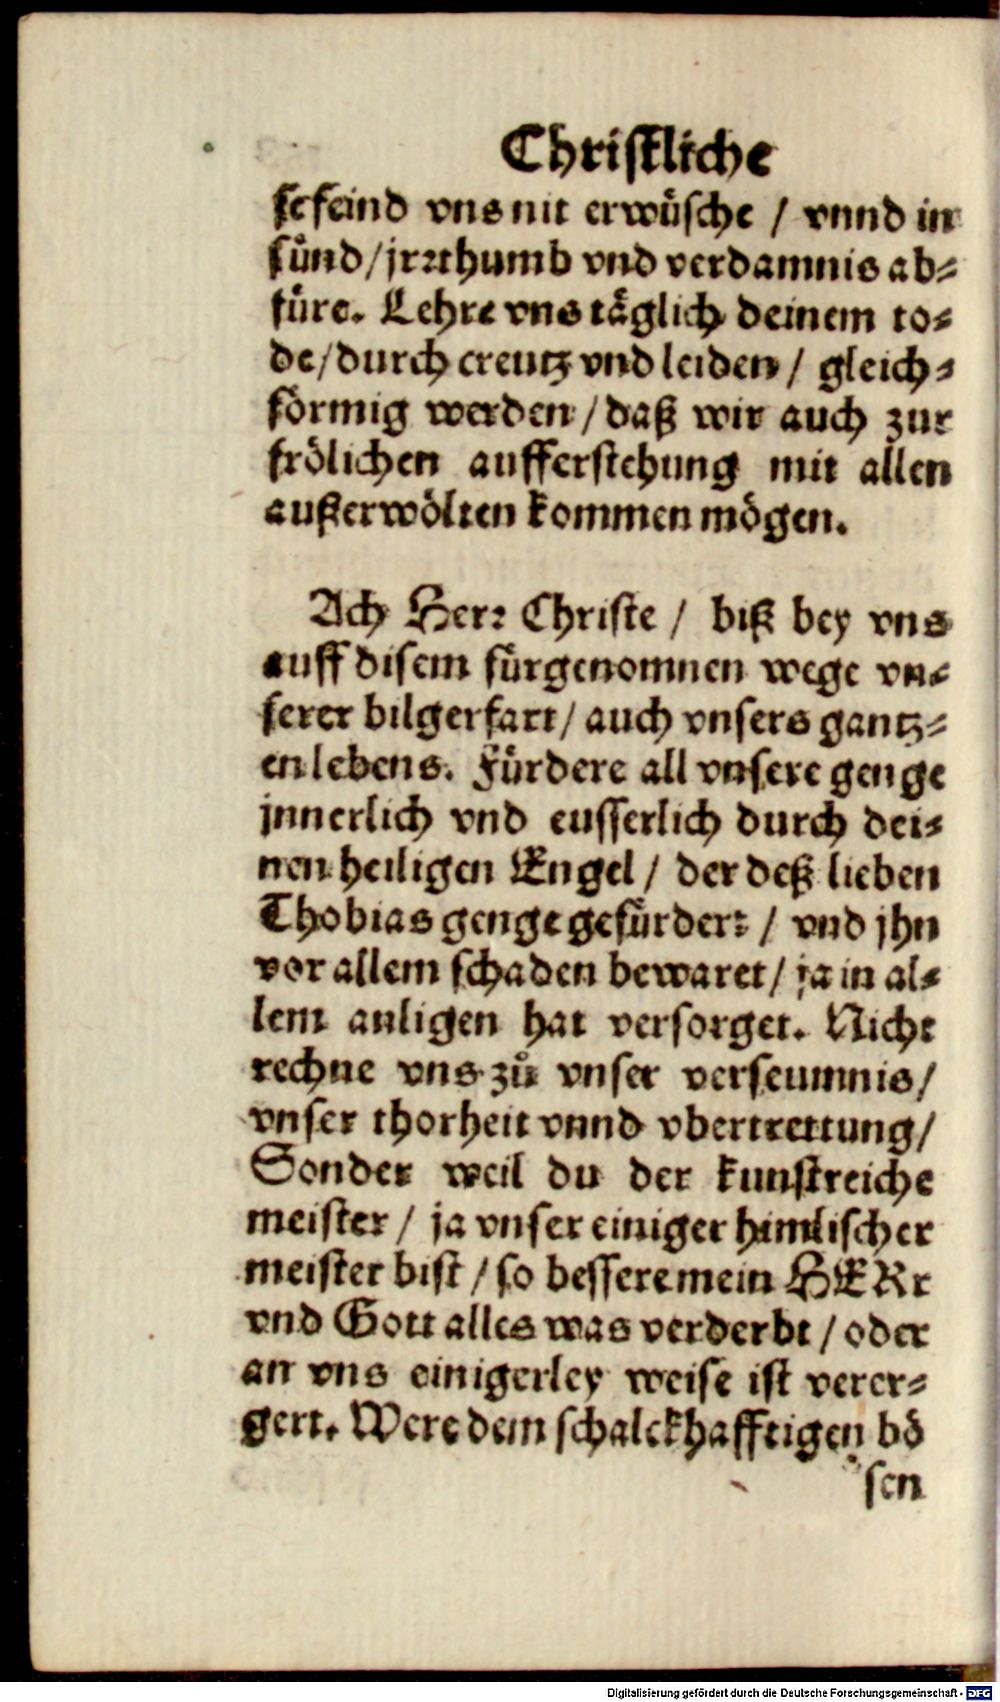 Christliche
se feind vns nit erwüsche / vnnd in
sünd / jrꝛthumb vnd verdamnis ab⸗
füre. Lehre vns täglich deinem to⸗
de / durch creutz vnd leiden / gleich⸗
förmig werden / daß wir auch zur
frölichen aufferstehung mit allen
außerwölten kommen mögen.
Ach Herꝛ Christe / biß bey vns
auff disem fürgenomnen wege vn⸗
serer bilgerfart / auch vnsers gantz⸗
en lebens. Fürdere all vnsere genge
jnnerlich vnd eusserlich durch dei⸗
nen heiligen Engel / der deß lieben
Thobias genge gefürdert / vnd jhn
vor allem schaden bewaret / ja in al⸗
lem anligen hat versorget. Nicht
rechne vns zů vnser verseumnis /
vnser thorheit vnnd vbertrettung /
Sonder weil du der kunstreiche
meister / ja vnser einiger himlischer
meister bist / so bessere mein HERr
vnd Gott alles was verderbt / oder
an vns einigerley weise ist verer⸗
gert. Were dem schalckhafftigen bö
sen
Digitalisierung gefördert durch die Deutsche Forschungsgemeinschaft - DFG